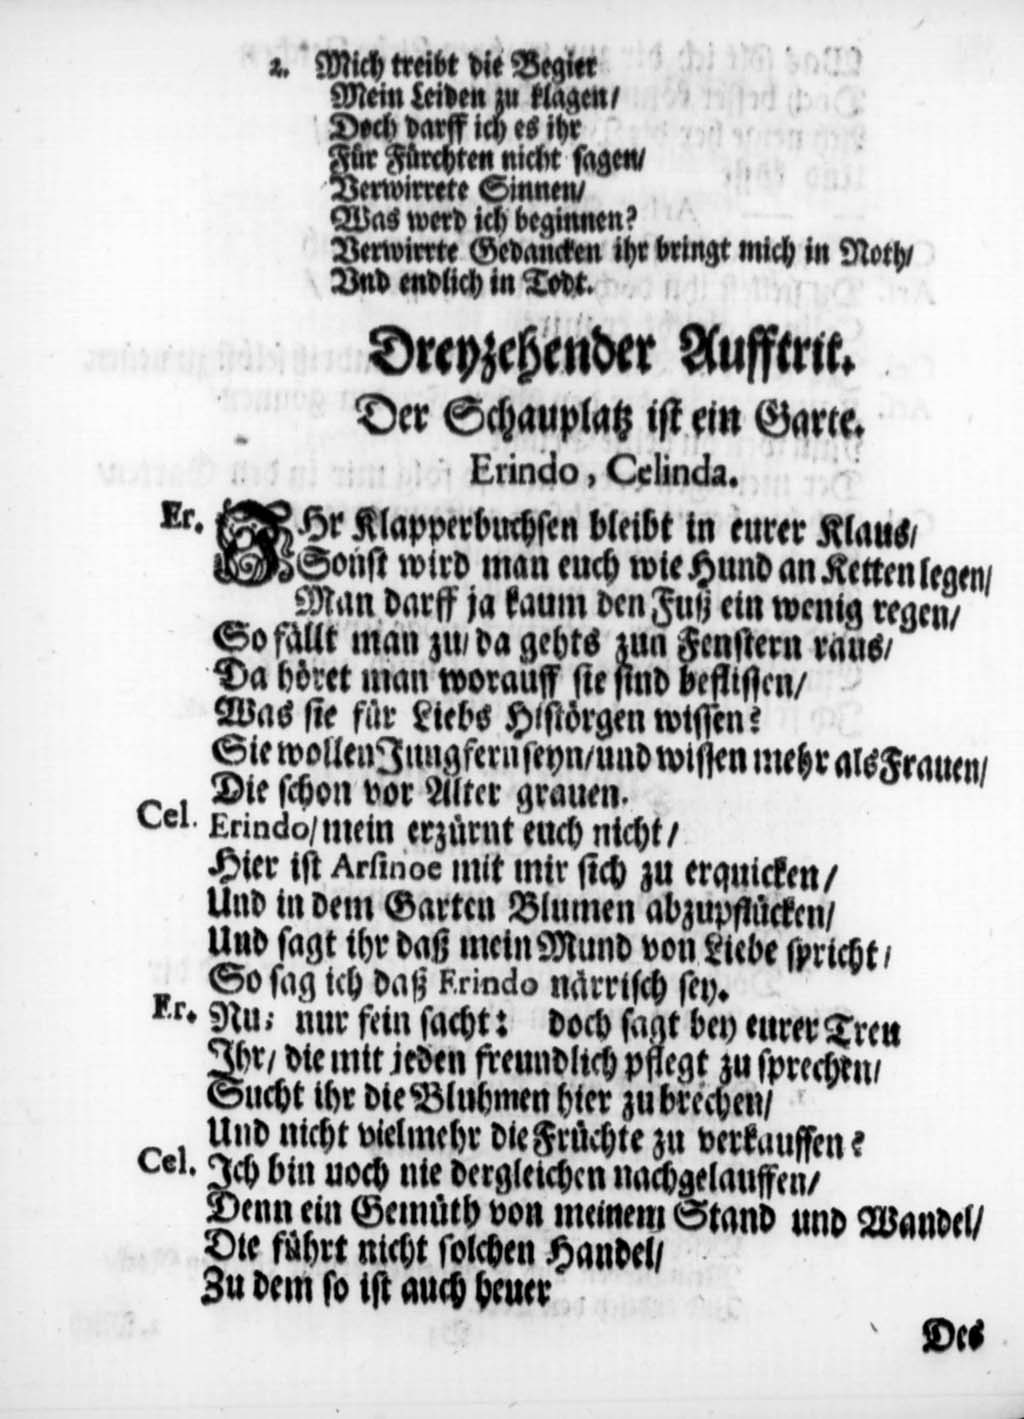 2. Mich treibt die Begier
Mein Leiden zu klagen/
Doch darff ich es ihr
Für Fürchten nicht sagen/
Verwirrete Sinnen/
Was werd ich beginnen?
Verwirrte Gedancken ihr bringt mich in Noth/
Vnd endlich in Todt.
Dreyzehender Aufftrit.
Der Schauplatz ist ein Garte.
Erindo, Celinda.
Er. IHr Klapperbuchsen bleibt in eurer Klaus/
Sonst wird man euch wie Hund an Ketten legen/
Man darff ja kaum den Fuß ein wenig regen/
So fällt man zu/ da gehts zun Fenstern raus/
Da höret man worauff sie sind beflissen/
Was sie für Liebs Histörgen wissen?
Sie wollen Jungfern seyn/ und wissen mehr als Frauen/
Die schon vor Alter grauen.
Cel. Erindo/ mein erzürnt euch nicht/
Hier ist Arsinoe mit mir sich zu erquicken/
Und in dem Garten Blumen abzupflücken/
Und sagt ihr daß mein Mund von Liebe spricht/
So sag ich daß Erindo närrisch sey.
Er. Nu; nur fein sacht: doch sagt bey eurer Treu
Ihr/ die mit jeden freundlich pflegt zu sprechen/
Sucht ihr die Bluhmen hier zu brechen/
Und nicht vielmehr die Früchte zu verkauffen?
Cel. Ich bin noch nie dergleichen nachgelauffen/
Denn ein Gemüth von meinem Stand und Wandel/
Die führt nicht solchen Handel/
Zu dem so ist auch heuer
Des